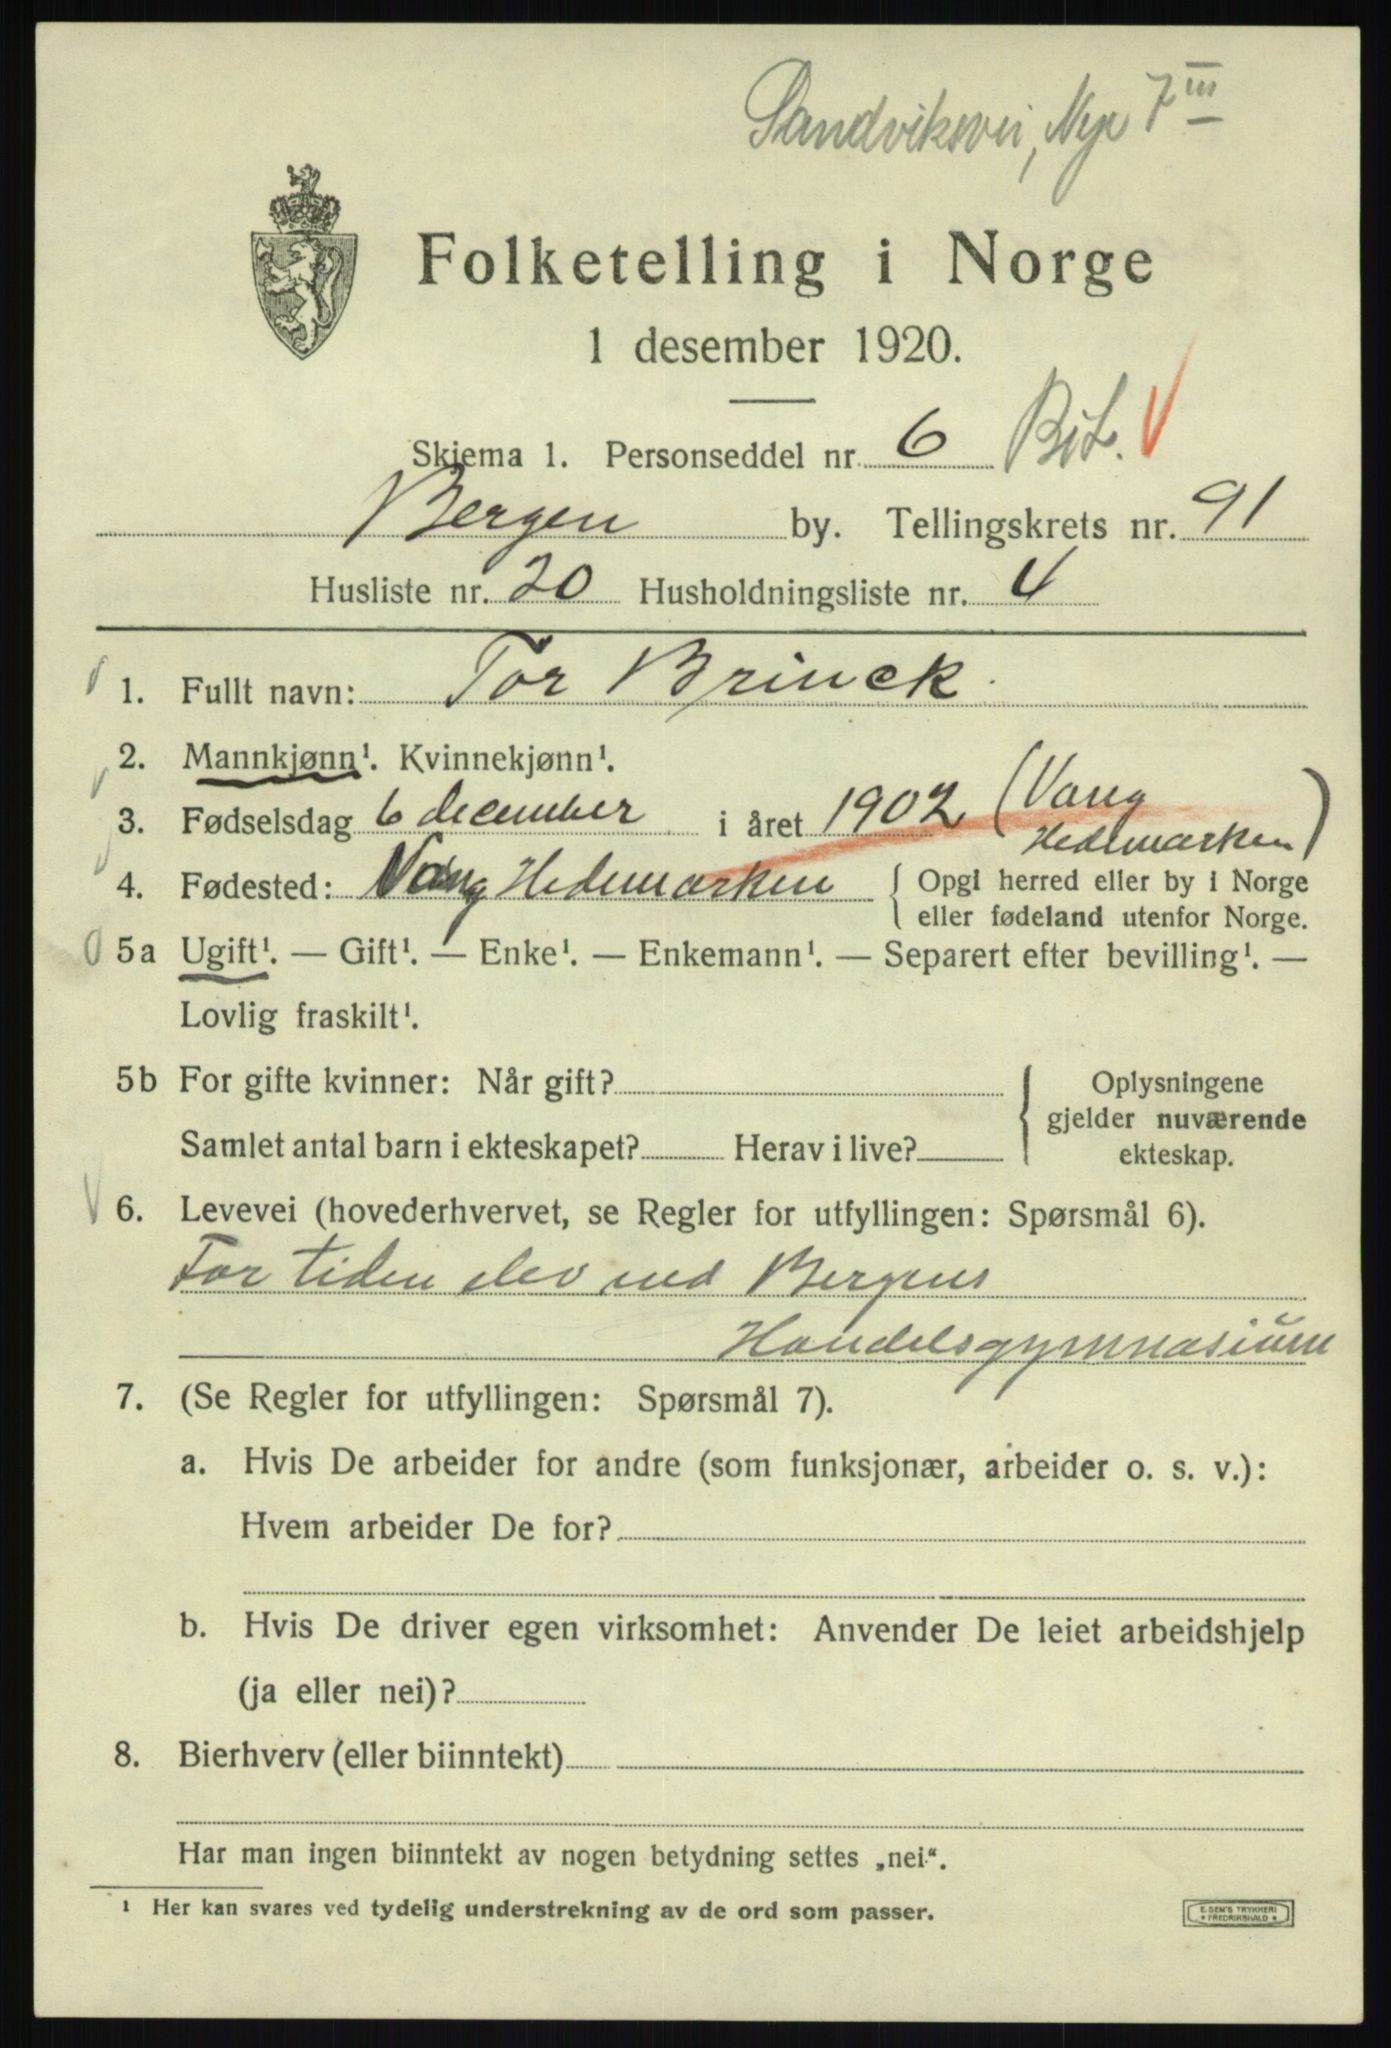 Sandviksvei, Nye 7 III
Folketelling i Norge
1 desember 1920.
Skjema 1. Personseddel nr. 6
Bergen by. Tellingskrets nr. 91
Husliste nr. 20 Husholdningsliste nr. 4
1. Fullt navn: Tor Brinck
2. Mannkjønn¹. Kvinnekjønn¹.
3. Fødselsdag 6 december i året 1902 (Vang
Hedemarken)
4. Fødested: Vang Hedemarken { Opgi herred eller by i Norge
eller fødeland utenfor Norge.
5a Ugift¹. — Gift¹. — Enke¹. — Enkemann¹. — Separert efter bevilling¹. —
Lovlig fraskilt¹.
5b For gifte kvinner: Når gift? { Oplysningene
gjelder nuværende
Samlet antal barn i ekteskapet? Herav i live? ekteskap.
6. Levevei (hovederhvervet, se Regler for utfyllingen: Spørsmål 6).
For tiden elev ved Bergens
Handelsgymnasium
7. (Se Regler for utfyllingen: Spørsmål 7).
a. Hvis De arbeider for andre (som funksjonær, arbeider o. s. v.):
Hvem arbeider De for?
b. Hvis De driver egen virksomhet: Anvender De leiet arbeidshjelp
(ja eller nei)?
8. Bierhverv (eller biinntekt)
Har man ingen biinntekt av nogen betydning settes „nei“.
¹ Her kan svares ved tydelig understrekning av de ord som passer.
E. SEM'S TRYKKERI
* FREDRIKSHALD *